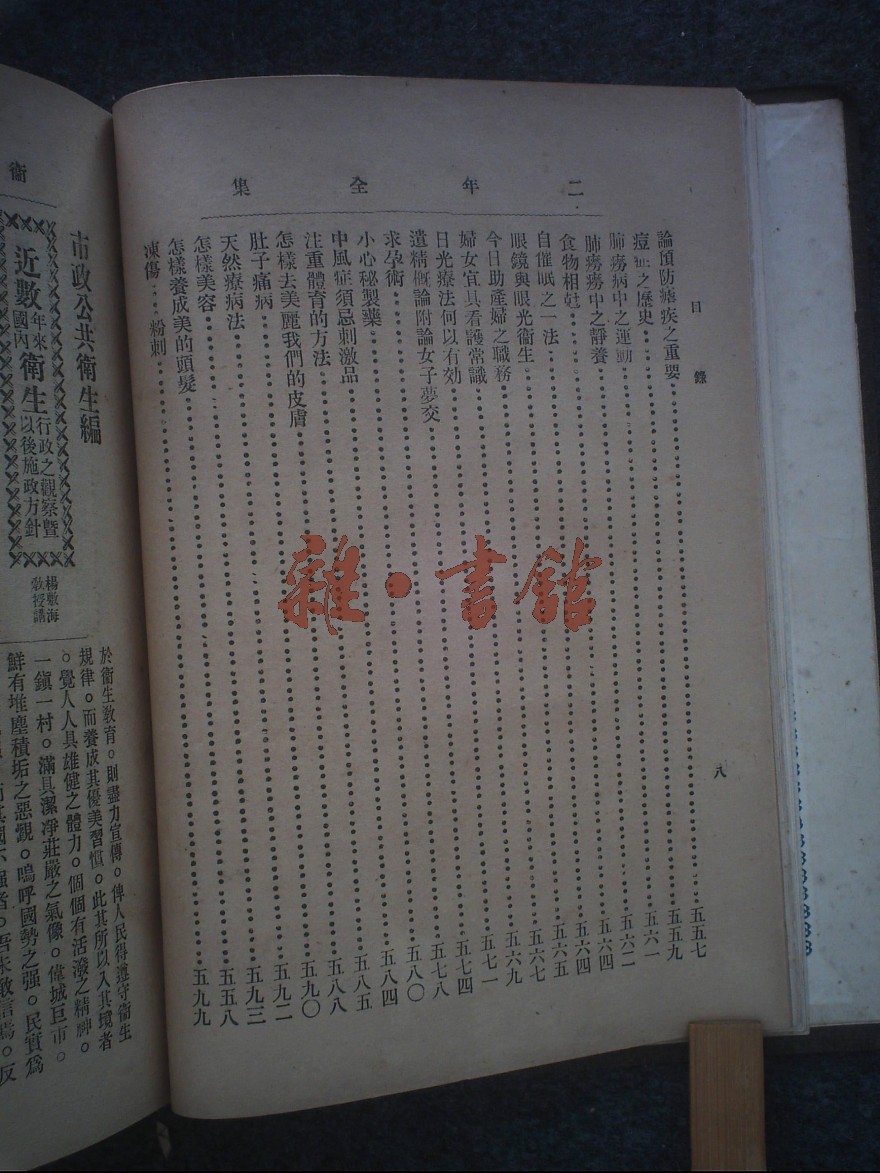 二年全集
目錄
八
論預防瘧疾之重要 五五七
痘症之歷史 五五九
肺癆病中之運動 五六一
肺癆癆中之靜養 五六二
食物相尅 五六四
自催眠之一法 五六四
眼鏡與眼光衞生 五六五
今日助產婦之職務 五六七
婦女宜具看護常識 五六九
日光療法何以有効 五七一
遺精概論附論女子夢交 五七四
求孕術 五七八
小心秘製藥 五八〇
中風症須忌刺激品 五八四
注重體育的方法 五八五
怎樣去美麗我們的皮膚 五八八
肚子痛病 五九〇
天然療病法 五九二
怎樣美容 五九三
怎樣養成美的頭髮 五五八
凍傷 粉刺 五九九
衞
市政公共衞生編
近數年來國內衞生行政之觀察暨以後施政方針
楊敷海教授講
於衞生教育。則盡力宣傳。俾人民得遵守衞生
規律。而養成其優美習慣。此其所以入其境者
。覺人人具雄健之體力。個個有活潑之精神。
一鎮一村。滿具潔淨莊嚴之氣像。偉城巨市。
鮮有堆塵積垢之惡觀。嗚呼國勢之强。民質爲
其國不强者。吾未敢信焉。反
雜·書館